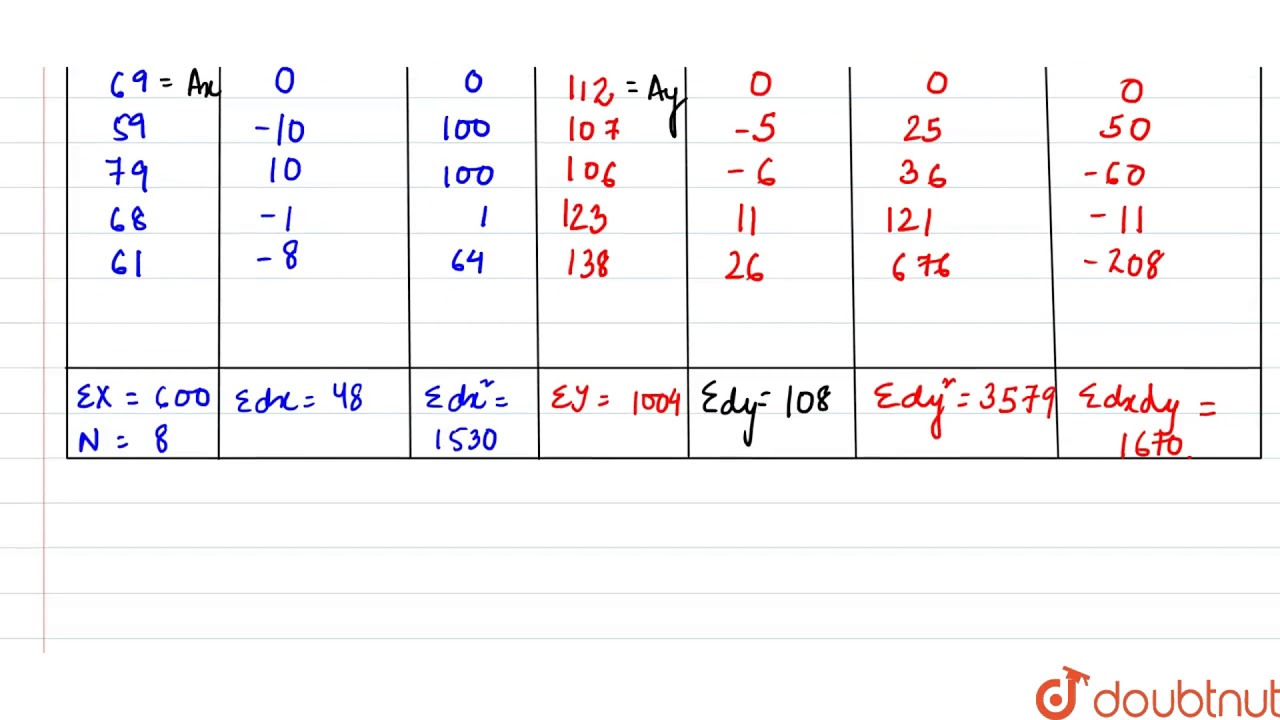 69 = Ax 0 0 112 = Ay 0 0 0
59 -10 100 107 -5 25 50
79 10 100 106 -6 36 -60
68 -1 1 123 11 121 -11
61 -8 64 138 26 676 -208
ΣX = 600 Σdx = 48 Σdx² = ΣY = 1004 Σdy = 108 Σdy² = 3579 Σdxdy =
N = 8 1530 1670.
doubtnut